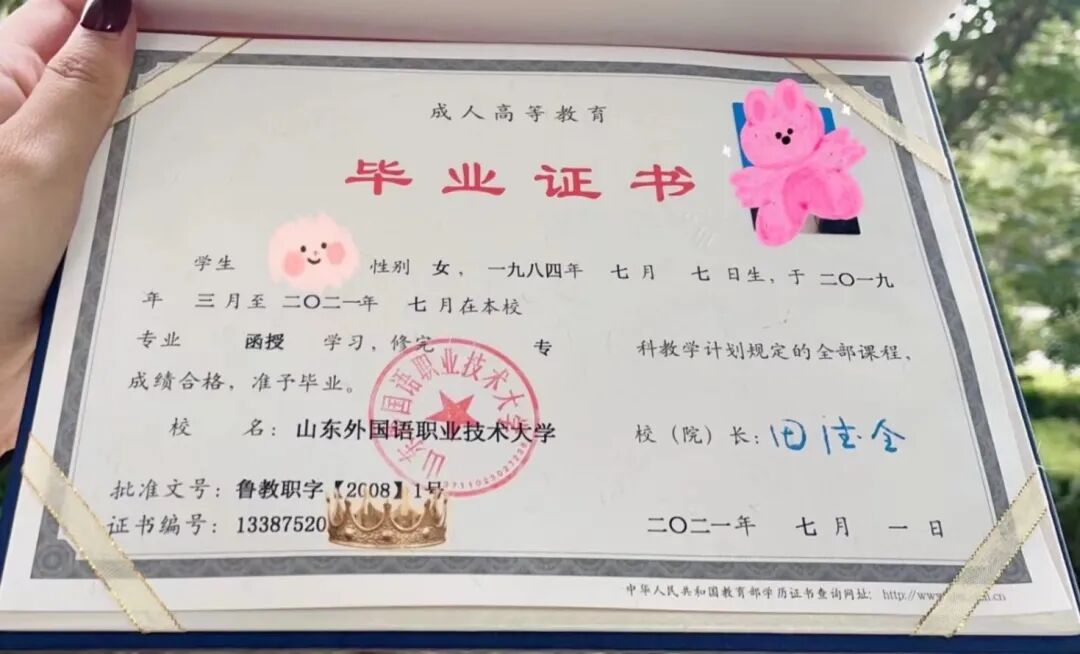 成人高等教育
毕业证书
学生 性别 女，一九八四年 七月 七日生，于二〇一九
年 三月至二〇二一年 七月在本校
专业 函授 学习，修完 专 科教学计划规定的全部课程，
成绩合格，准予毕业。
校 名：山东外国语职业技术大学 校（院）长：田德全
山东外国语职业技术大学
批准文号：鲁教职字【2008】1号
证书编号：13387520 二〇二一年 七月 一日
中华人民共和国教育部学历证书查询网址：http://www.